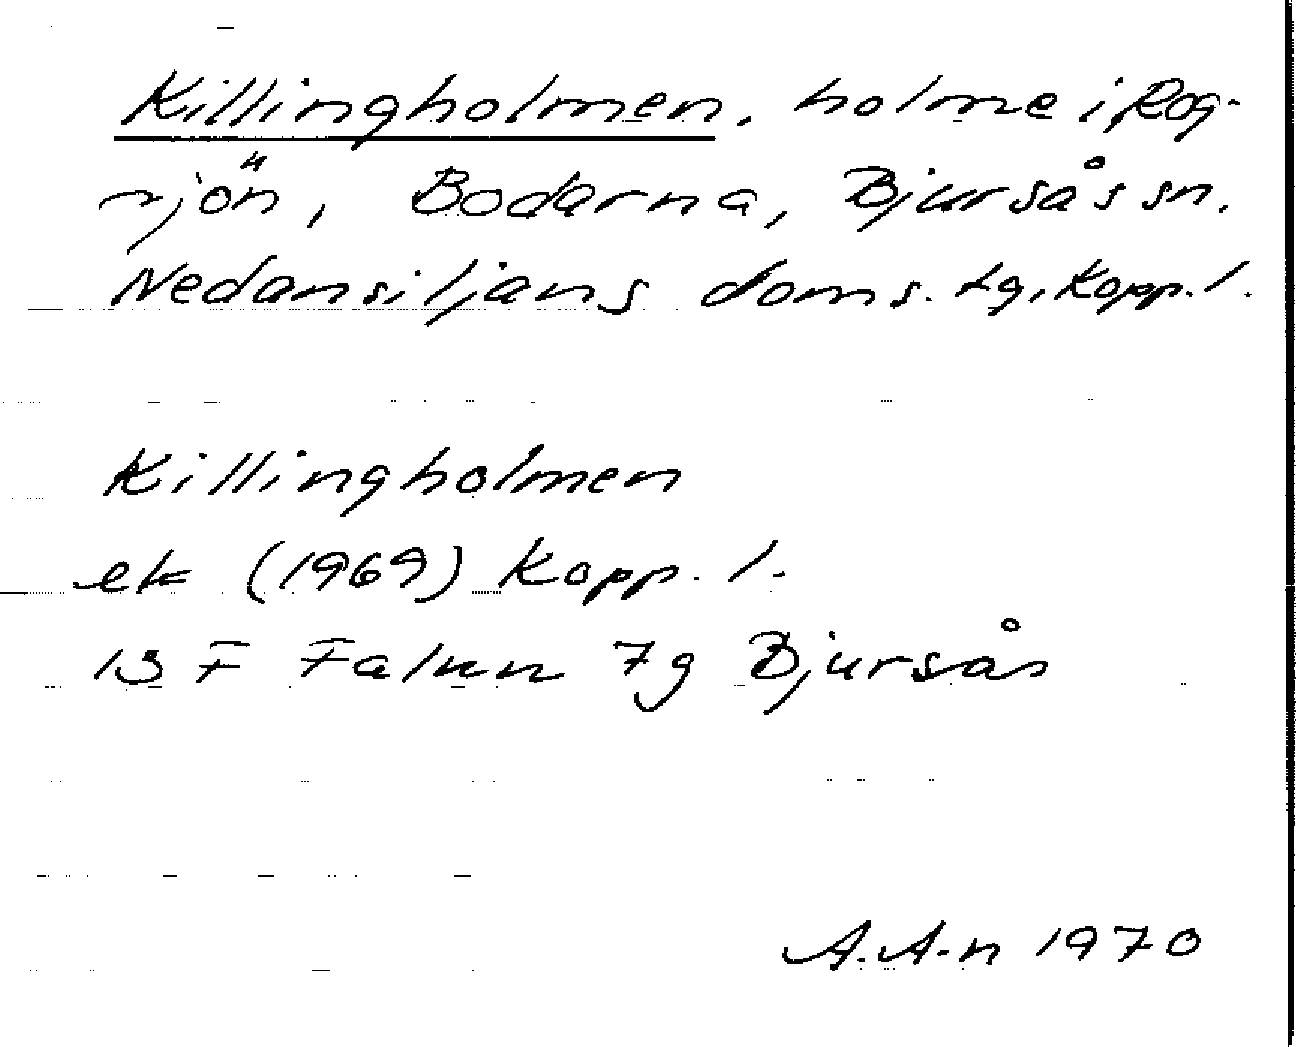 Killingholmen, holme i Rog-
sjön, Bodarna, Bjursås sn.
Nedansiljans doms. tg, Kopp. l.
Killingholmen
ek (1969) Kopp. l.
13 F Falun 7g Bjursås
A.A-n 1970